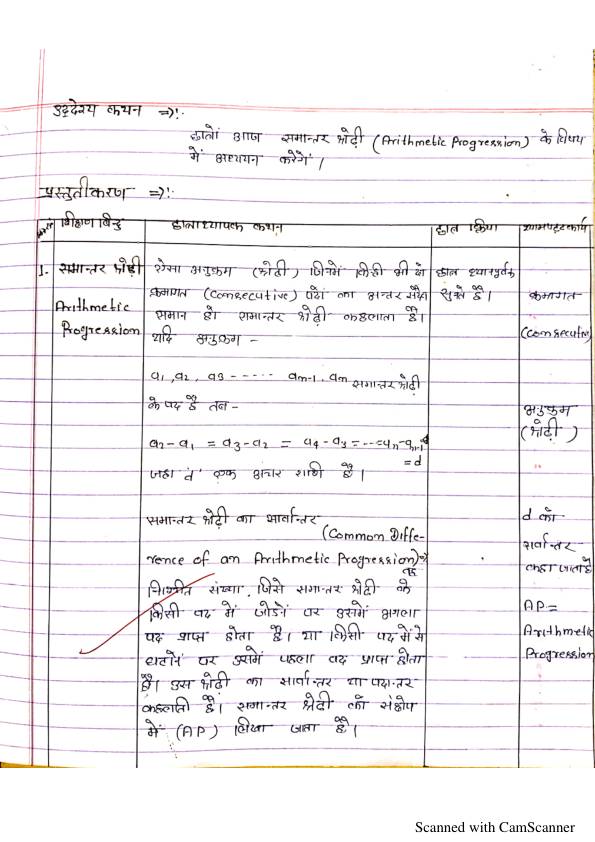 उद्देश्य कथन ⇒!·
छात्रों आज समान्तर श्रेढ़ी (Arithmetic Progression) के विषय
में अध्ययन करेंगे।
प्रस्तुतीकरण ⇒!·
शिक्षण बिन्दु
छात्राध्यापक कथन
छात्र क्रिया
श्यामपट्ट कार्य
1. समान्तर श्रेढ़ी
Arithmetic
Progression
ऐसा अनुक्रम (श्रेढ़ी) जिनमें किसी भी दो
क्रमागत (Consecutive) पदों का अन्तर सदैव
समान हो। समान्तर श्रेढ़ी कहलाता है।
यदि अनुक्रम -
a1, a2, a3 ----- am-1, am समान्तर श्रेढ़ी
के पद है तब -
a2-a1 = a3-a2 = a4-a3 = ---an-an-1
= d
जहा 'd' एक अचार राशि है।
समान्तर श्रेढ़ी का सार्वान्तर
(Common Diffe-
rence of an Arithmetic Progression)⇒
वह
निश्चित संख्या, जिसे समान्तर श्रेढ़ी के
किसी पद में जोड़ने पर उसमें अगला
पद प्राप्त होता है। या किसी पद में से
घटाने पर उसमें पहला पद प्राप्त होता
है। उस श्रेढ़ी का सार्वान्तर या पदान्तर
कहलाती है। समान्तर श्रेढ़ी को संक्षेप
में (AP) लिखा जाता है।
छात्र ध्यानपूर्वक
सुनते है।
क्रमागत
(Consecutive)
अनुक्रम
(श्रेढ़ी)
d को
सार्वान्तर
कहा जाता है
AP =
Arithmetic
Progression
Scanned with CamScanner